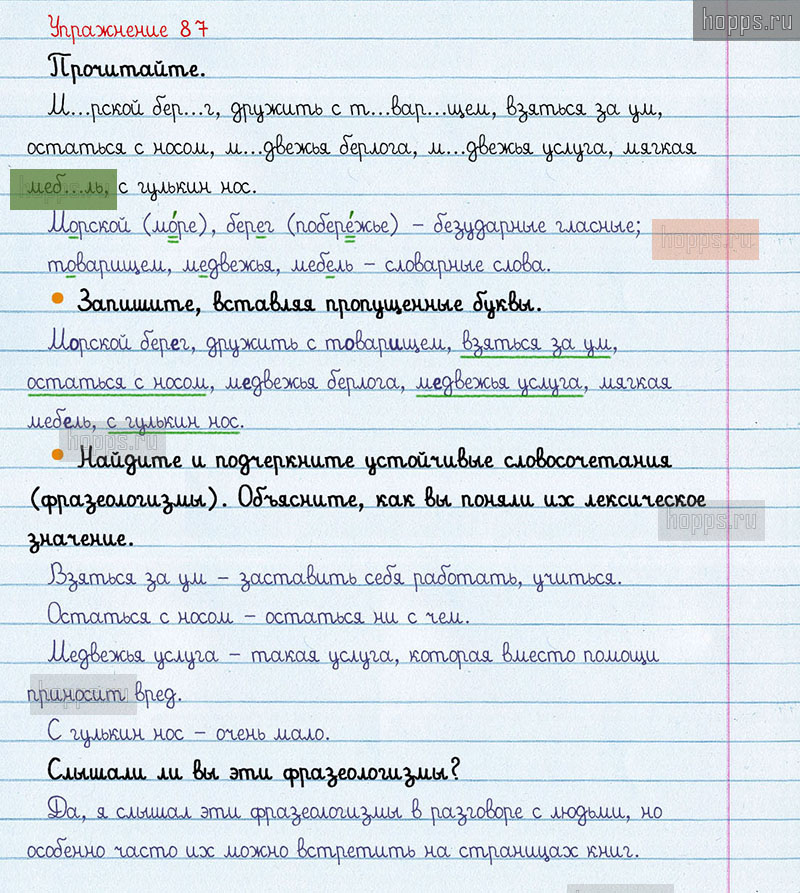 hopps.ru
Упражнение 87
Прочитайте.
М...рской бер...г, дружить с т...вар...щем, взяться за ум,
остаться с носом, м...двежья берлога, м...двежья услуга, мягкая
меб...ль, с гулькин нос.
Морской (мо́ре), берег (побере́жье) – безударные гласные;
hopps.ru
товарищем, медвежья, мебель – словарные слова.
• Запишите, вставляя пропущенные буквы.
Морской берег, дружить с товарищем, взяться за ум,
остаться с носом, медвежья берлога, медвежья услуга, мягкая
мебель, с гулькин нос.
hopps.ru
• Найдите и подчеркните устойчивые словосочетания
(фразеологизмы). Объясните, как вы поняли их лексическое
hopps.ru
значение.
Взяться за ум – заставить себя работать, учиться.
Остаться с носом – остаться ни с чем.
Медвежья услуга – такая услуга, которая вместо помощи
приносит вред.
С гулькин нос – очень мало.
Слышали ли вы эти фразеологизмы?
Да, я слышал эти фразеологизмы в разговоре с людьми, но
особенно часто их можно встретить на страницах книг.